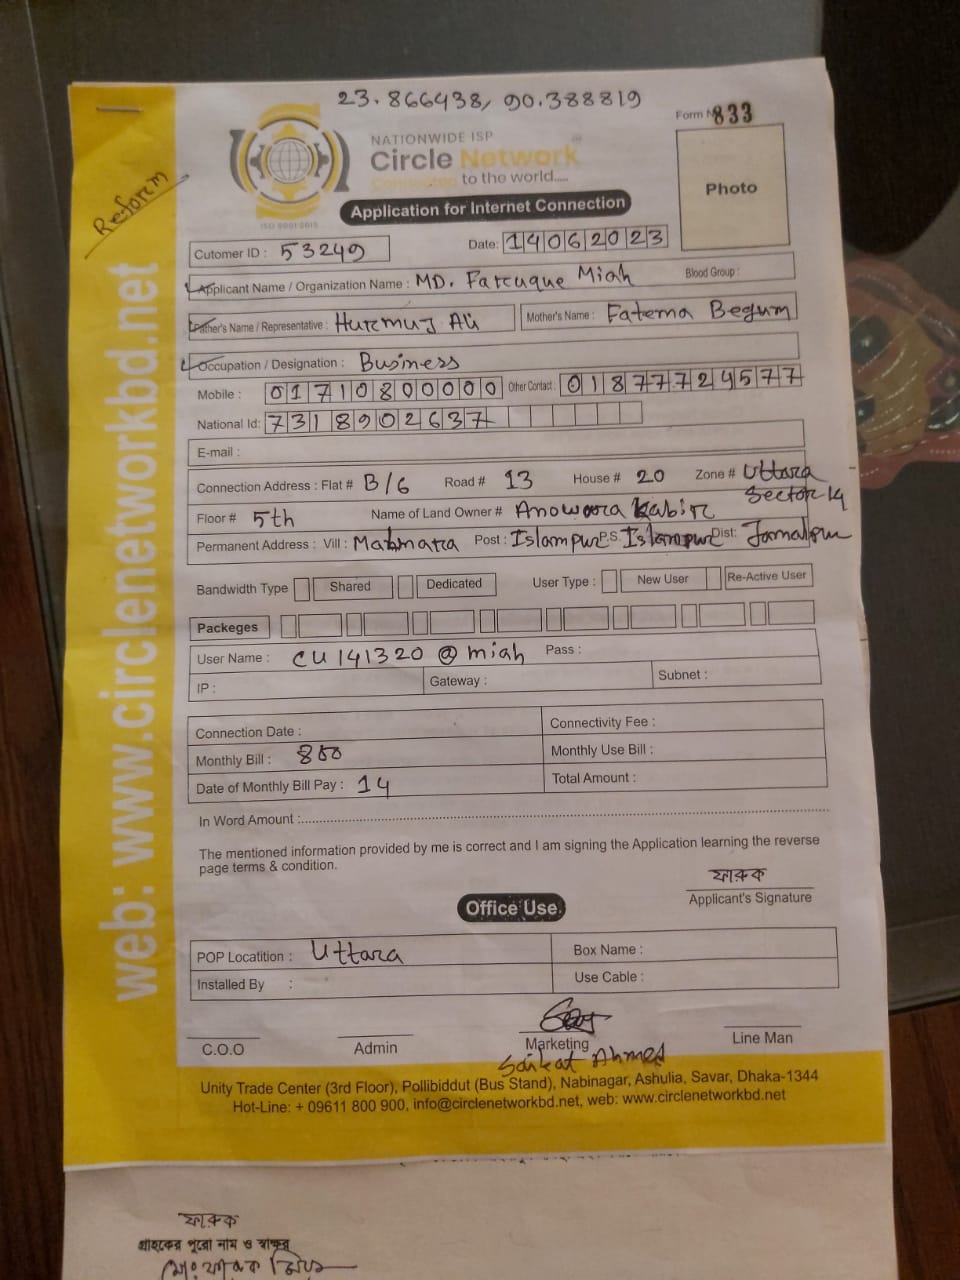 23.866438, 90.388819
Form N 833
NATIONWIDE ISP
Circle Network
Connected to the world.....
ISO 9001:2015
Photo
Reform
Application for Internet Connection
Cutomer ID : 53249
Date: 14062023
Applicant Name / Organization Name : MD. Faruque Miah
Blood Group :
Father's Name / Representative : Hurmuj Ali
Mother's Name : Fatema Begum
Occupation / Designation : Business
Mobile : 01710800000 Other Contact : 01877724577
National Id: 7318902637
E-mail :
Connection Address : Flat # B/6 Road # 13 House # 20 Zone # Uttara Sector-14
Floor # 5th Name of Land Owner # Anowara Kabir
Permanent Address : Vill : Post : Islampur P.S. Islampur Dist: Jamalpur
Bandwidth Type Shared Dedicated User Type : New User Re-Active User
Packeges
User Name : CU141320@miah Pass :
IP : Gateway : Subnet :
Connection Date : Connectivity Fee :
Monthly Bill : 800 Monthly Use Bill :
Date of Monthly Bill Pay : 14 Total Amount :
In Word Amount :
The mentioned information provided by me is correct and I am signing the Application learning the reverse
page terms & condition.
ফারুক
Applicant's Signature
Office Use
POP Locatition : Uttara Box Name :
Installed By : Use Cable :
C.O.O Admin Marketing Line Man
Saikat Ahmed
Unity Trade Center (3rd Floor), Pollibiddut (Bus Stand), Nabinagar, Ashulia, Savar, Dhaka-1344
Hot-Line: + 09611 800 900, info@circlenetworkbd.net, web: www.circlenetworkbd.net
web: www.circlenetworkbd.net
ফারুক
গ্রাহকের পুরো নাম ও স্বাক্ষর
মোঃ ফারুক মিয়া